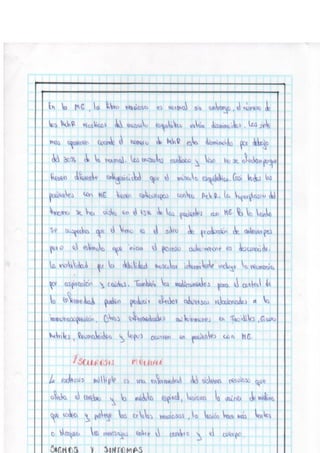 En la ME, la fibra nerviosa es normal sin embargo, el número de
los AchR nicotinicos del musculo esqueletico están disminuidos. Los sínto
mas aparecen cuando el número de AchR esta disminuido por debajo
del 30% de lo normal. Los musculos cardiaco y liso no se afectan porque
tienen diferente antigenicidad que el musculo esqueletico. Casi todos los
pacientes con ME tienen anticuerpos contra AchR. la hiperplasia del
timo se ha visto en el de los pacientes con ME Por lo tanto
Se sospecha que el timo es el sitio de producción de anticuerpos
pero el estimulo que inicia el proceso auto-inmune es desconocido.
La morbilidad por la debilidad muscular intermitente incluye la neumonia
por aspiración y caidas. Tambien los medicamentos para el control de
la enfermedad pueden producir efectos adversos relacionados a la
inmunosupresión, Otras enfermedades autoinmunes en Tiroiditis, Graves
Artritis, Reumatoidea y lupus ocurren en pacientes con ME.
ESCLEROSIS MULTIPLE
La esclerosis múltiple es una enfermedad del sistema nervioso que
afecta el cerebro y la médula espinal, lesiona la vaina de mielina
que rodea y protege las celulas nerviosas, la lesión hace más lentos
o bloquea los mensajes entre el cerebro y el cuerpo.
SIGNOS Y SINTOMAS